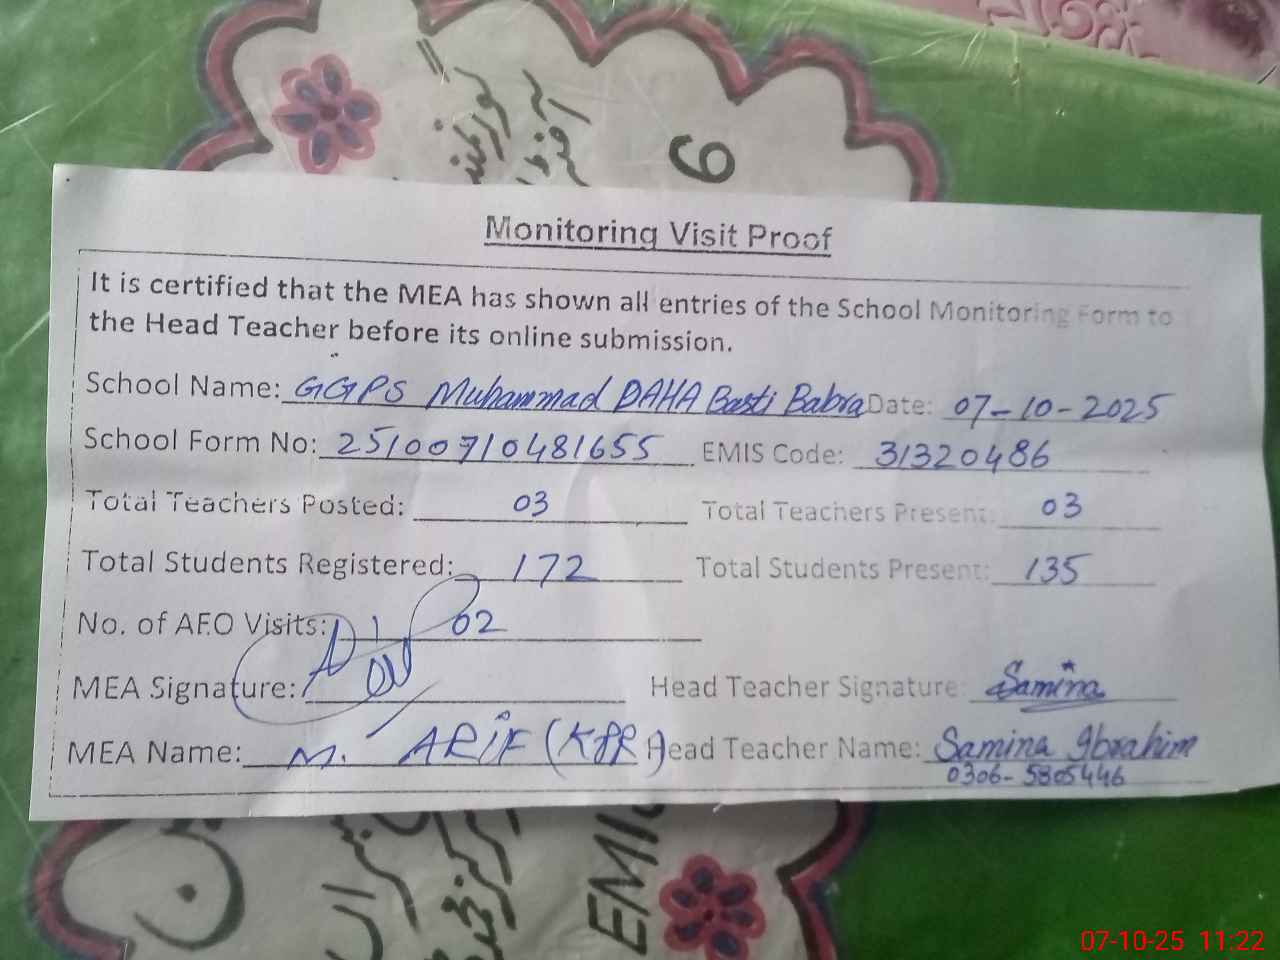 6
Monitoring Visit Proof
It is certified that the MEA has shown all entries of the School Monitoring Form to
the Head Teacher before its online submission.
School Name: GGPS Muhammad DAHA Basti Babra Date: 07-10-2025
School Form No: 25100710481655 EMIS Code: 31320486
Total Teachers Posted: 03 Total Teachers Present: 03
Total Students Registered: 172 Total Students Present: 135
No. of AEO Visits: 02
MEA Signature: Head Teacher Signature: Samina
MEA Name: M. ARIF (KPR) Head Teacher Name: Samina Ibrahim
0306-5805446
EMIS
07-10-25 11:22